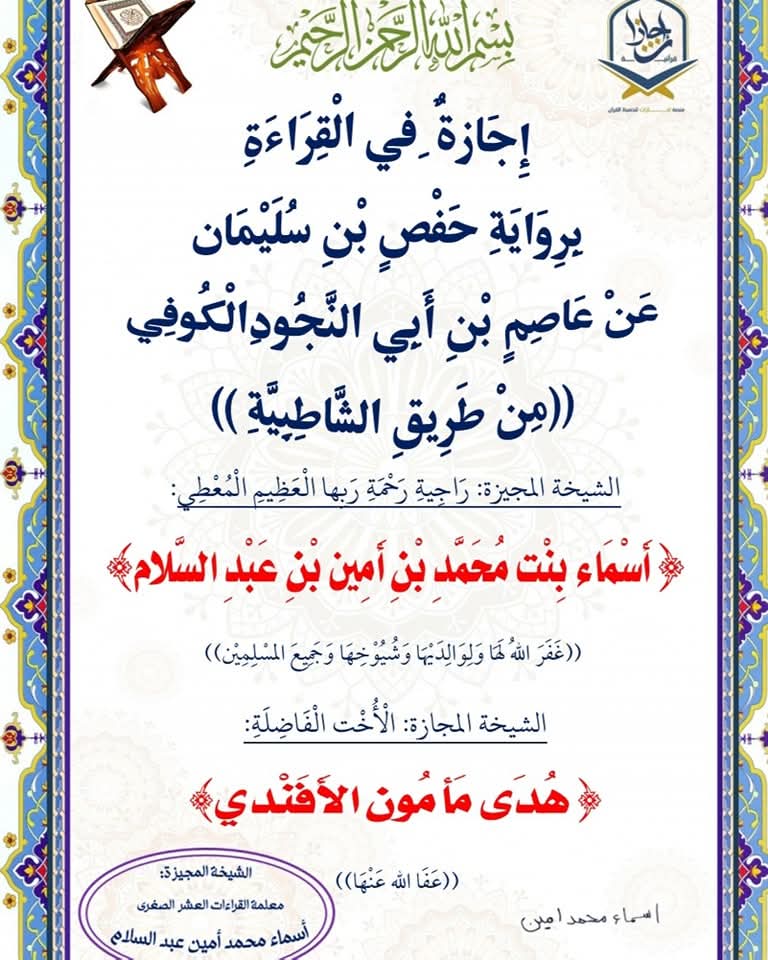 بِسْمِ اللهِ الرَّحْمٰنِ الرَّحِيْمِ
إجازات
قرآنية
منصة إجازات لتحفيظ القرآن
إِجَازةٌ فِي الْقِرَاءَةِ
بِرِوَايَةِ حَفْصٍ بْنِ سُلَيْمَان
عَنْ عَاصِمٍ بْنِ أَبِي النَّجُودِالْكُوفِي
((مِنْ طَرِيقِ الشَّاطِبِيَّةِ ))
الشيخة المجيزة: رَاجِيةِ رَحْمَةِ رَبها الْعَظِيمِ الْمُعْطِي:
﴿ أَسْمَاء بِنْت مُحَمَّدِ بْنِ أَمِين بْنِ عَبْدِ السَّلام﴾
((غَفَرَ اللهُ لَهَا وَلِوَالِدَيْهَا وَشُيُوْخِهَا وَجَمِيعَ المسْلِمِيْن))
الشيخة المجازة: الْأُخْت الْفَاضِلَةِ:
﴿ هُدَى مَأمُون الأَفَنْدي﴾
((عَفَا الله عَنْهَا))
الشيخة المجيزة:
معلمة القراءات العشر الصغرى
أسماء محمد أمين عبد السلام
اسماء محمد امين